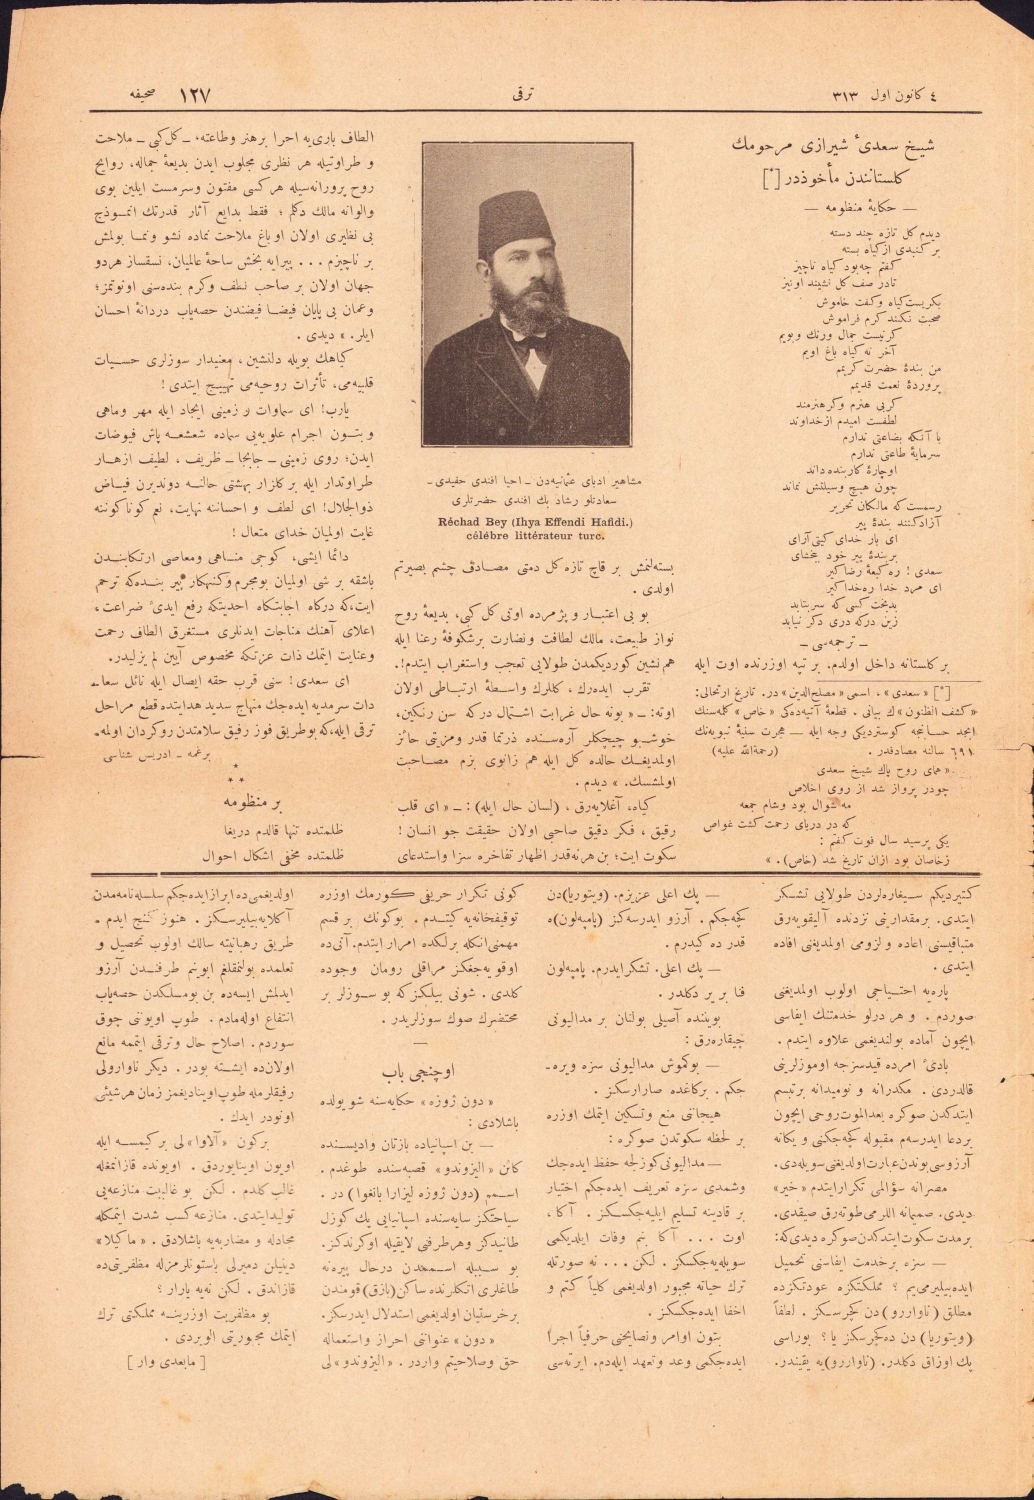 ٤ كانون اول ٣١٣
ترقی
صحیفه ١٢٧
شیخ سعدیٔ شیرازی مرحومك
كلستانندن مأخوذدر [*]
— حكایهٔ منظومه —
دیدم كل تازه چند دسته
بر كنبدی از كیاه بسته
كفتم چه بود كیاه ناچیز
تادر صف كل نشیند اونیز
بكریست كیاه وكفت خاموش
صحبت نكند كرم فراموش
كر نیست جمال ورنك وبویم
آخر نه كیاه باغ اویم
من بندهٔ حضرت كریمم
پروردهٔ نعمت قدیمم
كر بی هنرم وكر هنرمند
لطفست امیدم از خداوند
با آنكه بضاعتی ندارم
سرمایهٔ طاعتی ندارم
اوچارهٔ كار بنده داند
چون هیچ وسیلتش نماند
رسمست كه مالكان تحریر
آزاد كنند بندهٔ پیر
ای بار خدای كیتی آرای
بر بندهٔ پیر خود ببخشای
سعدی ! ره كعبهٔ رضا كیر
ای مرد خدا ره خدا كیر
بدبخت كسی كه سر بتابد
زین دركه دری دكر نیابد
— ترجمه‌سی —
بر كلستانه داخل اولدم. بر تپه اوزرنده اوت ایله
[*] «سعدی» ، اسمی «مصلح‌الدین» در. تاریخ ارتحالی:
«كشف الظنون» ك بیانی . قطعهٔ آتیه‌ده‌كی «خاص» كلمه‌سنك
ابجد حسابنجه كوستردیكی وجه ایله — هجرت سنیهٔ نبویه‌نك
٦٩١ سالنه مصادفدر . (رحمةالله علیه)
« همای روح پاك شیخ سعدی
چودر پرواز شد از روی اخلاص
مه شوال بود وشام جمعه
كه در دریای رحمت كشت غواص
یكی پرسید سال فوت كفتم :
زخاصان بود ازان تاریخ شد (خاص) . »
مشاهیر ادبای عثمانیه‌دن ـ احیا افندی حفیدی ـ
سعادتلو رشاد بك افندی حضرتلری
Réchad Bey (Ihya Effendi Hafidi.)
célébre littérateur turc.
بسته‌لنمش بر قاچ تازه كل دمتی مصادف چشم بصیرتم
اولدی .
بو بی اعتبار و پژمرده اوتی كل كبی، بدیعهٔ روح
نواز طبیعت، مالك لطافت ونضارت برشكوفهٔ رعنا ایله
هم نشین كوردیكمدن طولایی تعجب واستغراب ایتدم!.
تقرب ایده‌رك ، كللرك واسطهٔ ارتباطی اولان
اوته: ــ « بو نه حال غرابت اشتمال دركه سن رنكین،
خوشبو چیچكلر آره‌سنده ذرتما قدر ومزیتی حائز
اولمدیغك حالده كل ایله هم زانوی بزم مصاحبت
اولمشسك. » دیدم .
كیاه، آغلایه‌رق ، (لسان حال ایله) : ــ « ای قلب
رقیق ، فكر دقیق صاحبی اولان حقیقت جو انسان !
سكوت ایت؛ بن هرنه‌قدر اظهار تفاخره سزا واستدعای
الطاف باری‌یه احرا برهنر وطاعته، ـ كل كبی ـ ملاحت
و طراوتیله هر نظری مجلوب ایدن بدیعهٔ جماله، روایح
روح پرورانه‌سیله هر كسی مفتون وسرمست ایلین بوی
والوانه مالك دكلم ؛ فقط بدایع آثار قدرتك انموذج
بی نظیری اولان او باغ ملاحت نماده نشو ونما بولمش
بر ناچیزم . . . پیرایه بخش ساحهٔ عالمیان، نسقساز هردو
جهان اولان بر صاحب لطف وكرم بنده‌سنی اونوتمز؛
وعمان بی پایان فیضا فیضندن حصه‌یاب دردانهٔ احسان
ایلر. » دیدی .
كیاهك بویله دلنشین ، معنیدار سوزلری حسیات
قلبیه‌می، تأثرات روحیه‌می تهییج ایتدی !
یارب! ای سماوات و زمینی ایجاد ایله مهر وماهی
وبتون اجرام علویه‌یی سماده شعشعه پاش فیوضات
ایدن؛ روی زمینی ـ جابجا ـ ظریف ، لطیف ازهار
طراوتدار ایله بر كلزار بهشتی حالنه دوندیرن فیاض
ذوالجلال! ای لطف و احساننه نهایت، نعم كوناكوننه
غایت اولمیان خدای متعال !
دائما ایشی، كوجی مناهی ومعاصی ارتكابندن
باشقه بر شی اولمیان بومجرم وكنهكار پیر بنده‌كه ترحم
ایت، كه دركاه اجابتكاه احدیتكه رفع ایدیٔ ضراعت ،
اعلای آهنك مناجات ایدنلری مستغرق الطاف رحمت
وعنایت ایتمك ذات عزتكه مخصوص آیین لم یزلیدر.
ای سعدی! سنی قرب حقه ایصال ایله نائل سعا-
دات سرمدیه ایده‌جك منهاج سدید هدایتده قطع مراحل
ترقی ایله، كه بوطریق فوز رفیق سلامتدن روكردان اولمه-
برغمه ـ ادریس شناسی
* * *
بر منظومه
ظلمتده تنها قالدم دریغا
ظلمتده مخفی اشكال احوال
كتیردیكم سیغاره‌لردن طولایی تشكر
ایتدی. برمقدارینی نزدنده آلیقویه‌رق
متباقیسنی اعاده و لزومی اولمدیغنی افاده
ایتدی .
پاره‌یه احتیاجی اولوب اولمدیغنی
صوردم . و هر درلو خدمتنك ایفاسی
ایچون آماده بولندیغمی علاوه ایتدم .
بادیٔ امرده قیدسزجه اوموزلرینی
قالدردی . مكدرانه و نومیدانه برتبسم
ایتدكدن صوكره بعدالموت روحی ایچون
بردعا ایدرسه‌م مقبوله كچه‌جكنی و یكانه
آرزوسی بوندن عبارت اولدیغنی سویله‌دی.
مصرانه سؤالمی تكرار ایتدم «خیر»
دیدی. صمیمانه اللرمی طوته‌رق صیقدی.
برمدت سكوت ایتدكدن صوكره دیدی‌كه:
— سزه برخدمت ایفاسنی تحمیل
ایده‌بیلیرمی‌یم ؟ مملكتكزه عودتكزده
مطلق (ناواررو) دن كچرسكز . لطفاً
(ویتوریا) دن ده‌كچرسكز یا؟ بوراسی
پك اوزاق دكلدر. (ناواررو) یه یقیندر.
— پك اعلی عزیزم. (ویتوریا) دن
كچه‌جكم . آرزو ایدرسه‌كز (پامپه‌لون) ه
قدر ده كیدرم .
— پك اعلی. تشكر ایدرم. پامپه‌لون
فنا بر یر دكلدر.
بویننده آصیلی بولنان بر مدالیونی
چیقاره‌رق :
— بوكموش مدالیونی سزه ویره-
جكم . بركاغده صارارسكز .
هیجاننی منع وتسكین ایتمك اوزره
بر لحظه سكوتدن صوكره :
— مدالیونی كوزلجه حفظ ایده‌جك
وشمدی سزه تعریف ایده‌جكم اختیار
بر قادینه تسلیم ایلیه‌جكسكز . آكا ،
اوت . . . آكا بنم وفات ایلدیكمی
سویله‌یه‌جكسكز . لكن . . . نه صورتله
ترك حیاته مجبور اولدیغمی كلیاً كتم و
اخفا ایده‌جكسكز .
بتون اوامر ونصایحنی حرفیاً اجرا
ایده‌جكمی وعد وتعهد ایله‌دم. ایرته‌سی
كونی تكرار حریفی كورمك اوزره
توقیفخانه‌یه كیتدم . بوكونك بر قسم
مهمنی آنكله برلكده امرار ایتدم. آتی‌ده
اوقویه‌جغكز مراقلی رومان وجوده
كلدی . شونی بیلكز كه بو سوزلر بر
محتضرك صوك سوزلریدر .
—
اوچنجی باب
« دون ژوزه » حكایه‌سنه شویولده
باشلادی :
— بن اسپانیاده بازتان وادیسنده
كائن «الیزوندو» قصبه‌سنده طوغدم .
اسمم (دون ژوزه لیزارا بانغوا) در .
سیاحتكز سایه‌سنده اسپانیایی پك كوزل
طانیدكز وهر طرفنی لایقیله اوكرندكز.
بو سببله اسممدن درحال پیرنه
طاغلری اتكلرنده ساكن (بازق) قومندن
برخرستیان اولدیغمی استدلال ایدرسكز.
« دون » عنواننی احراز واستعماله
حق وصلاحیتم واردر . «الیزوندو» لی
اولدیغمی ده ابراز ایده‌جكم سلسله‌نامه‌مدن
آكلایه‌بیلیرسكز . هنوز كنج ایدم .
طریق رهبانیته سالك اولوب تحصیل و
تعلمده بولنمقلغم ابوینم طرفندن آرزو
ایدلمش ایسه‌ده بن بومسلكدن حصه‌یاب
انتفاع اوله‌مادم . طوپ اویوننی چوق
سوردم. اصلاح حال وترقی ایتممه مانع
اولان‌ده ایشته بودر. دیكر ناوارولی
رفیقلرمله طوپ اوینادیغمز زمان هرشیئی
اونودر ایدك.
بركون «آلاوا» لی بر كیمسه ایله
اویون اوینایوردق . اویونده قازانمغله
غالب كلدم . لكن بو غالبیت منازعه‌یی
تولیدایتدی. منازعه كسب شدت ایتمكله
مجادله و مضاربه‌یه باشلادق . «ماكیلا»
دینیلن دمیرلی باستونلرمزله مظفریتی ده
قازاندق . لكن نه‌یه یارار ؟
بو مظفریت اوزرینه مملكتی ترك
ایتمك مجبوریتی الویردی .
[ مابعدی وار ]